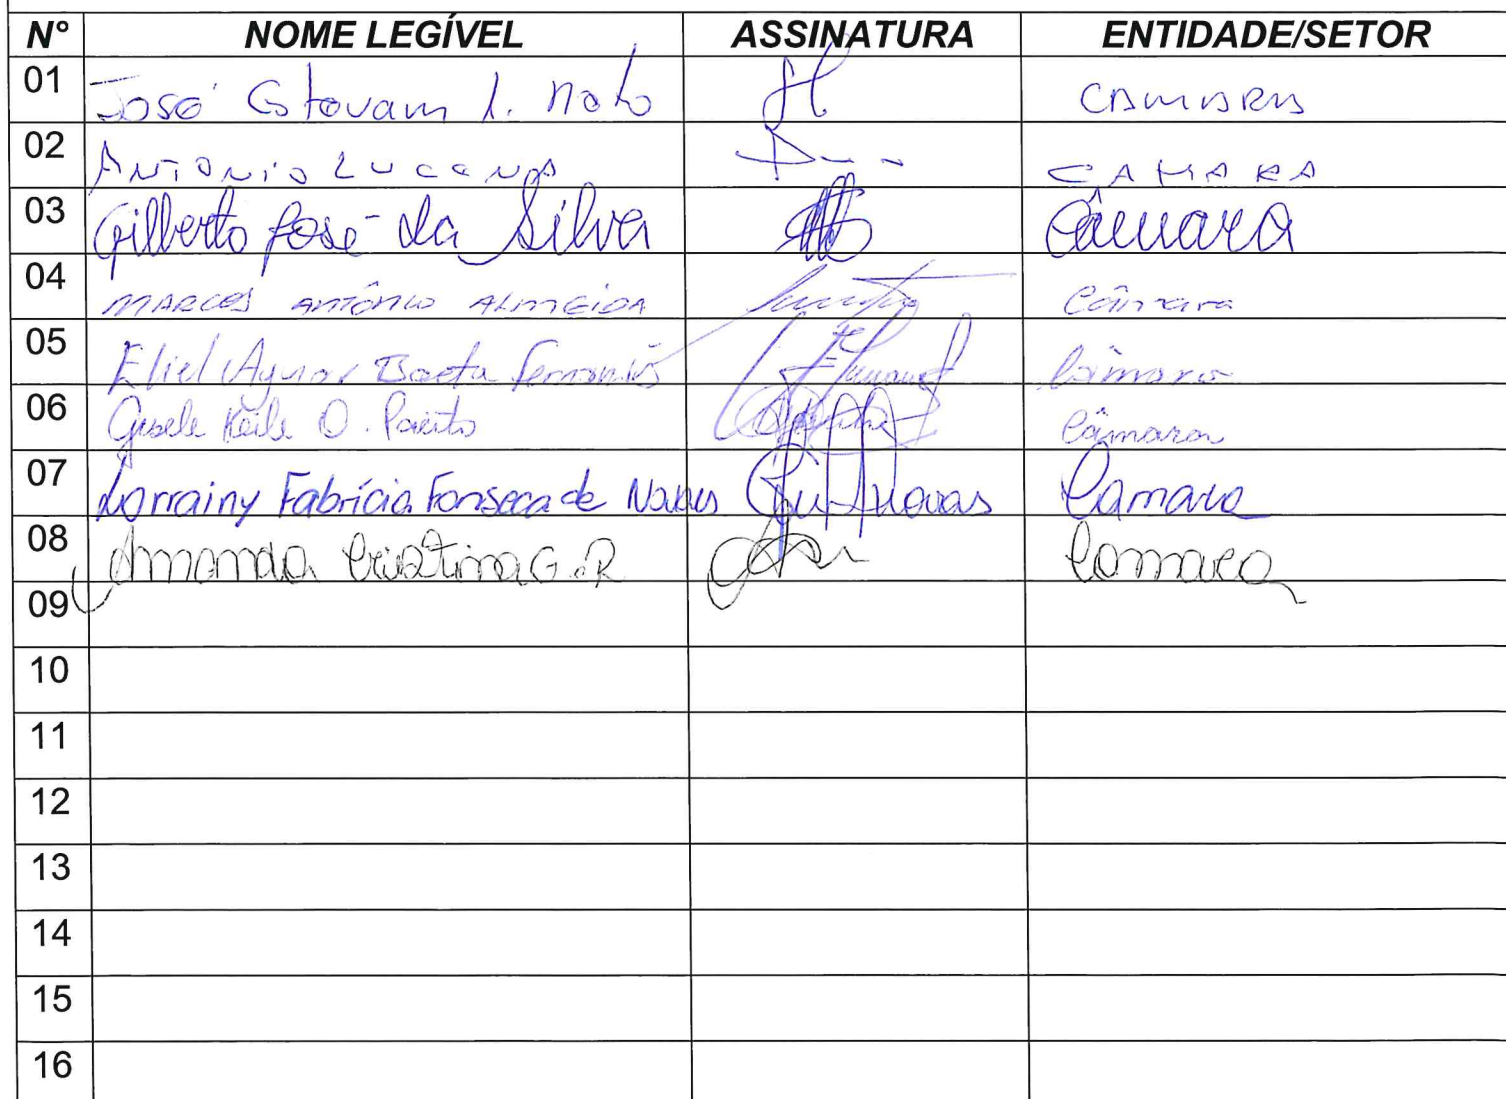 N° NOME LEGÍVEL ASSINATURA ENTIDADE/SETOR
01 José Estevam CAMARA
02 ANTONIO LUCAS CAMARA
03 Gilberto José da Silva Câmara
04 MARCOS ANTÔNIO ALMEIDA Câmara
05 Eliel Aguiar Baeta Câmara
06 Gisele Keile O. Câmara
07 Lorrainy Fabrícia Fonseca de Novais Camara
08 Amanda Cristina G. R Camara
09
10
11
12
13
14
15
16